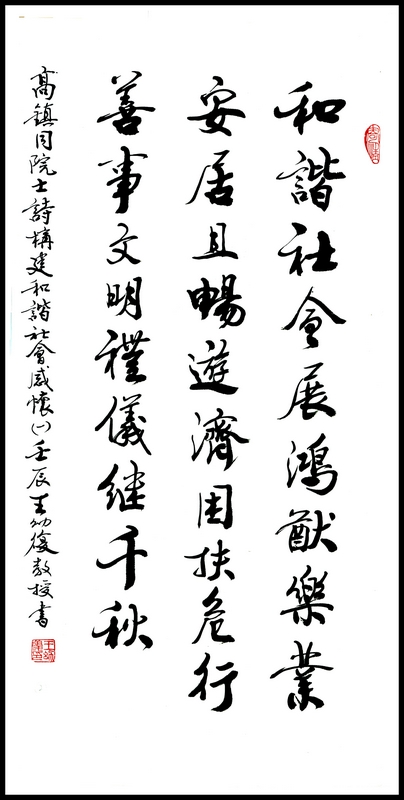 和諧社会展鴻猷樂業
安居且暢遊濟困扶危行
善事文明禮儀继千秋
高鎮同院士詩構建和諧社會感懷(一)壬辰王幼復教授書